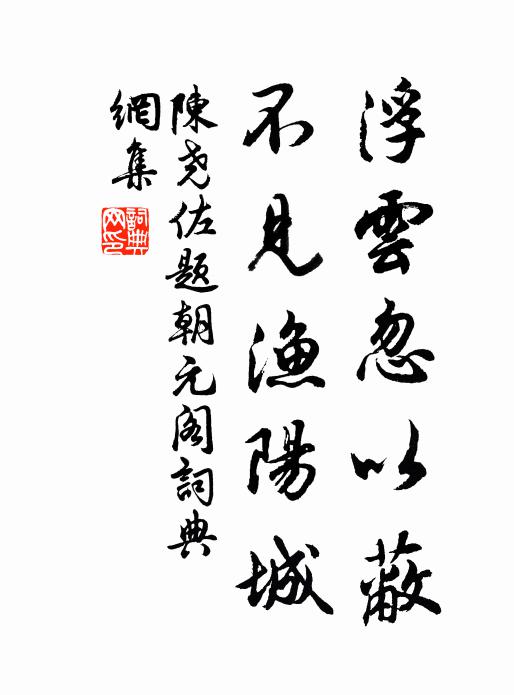 浮雲忽以蔽
不見漁陽城
陳尧佐题朝元阁詞典
網集
詞典
网印